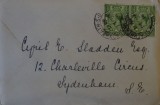 Cyril E. Sladden Esq.
12, Charleville Circus,
Sydenham,
S.E.